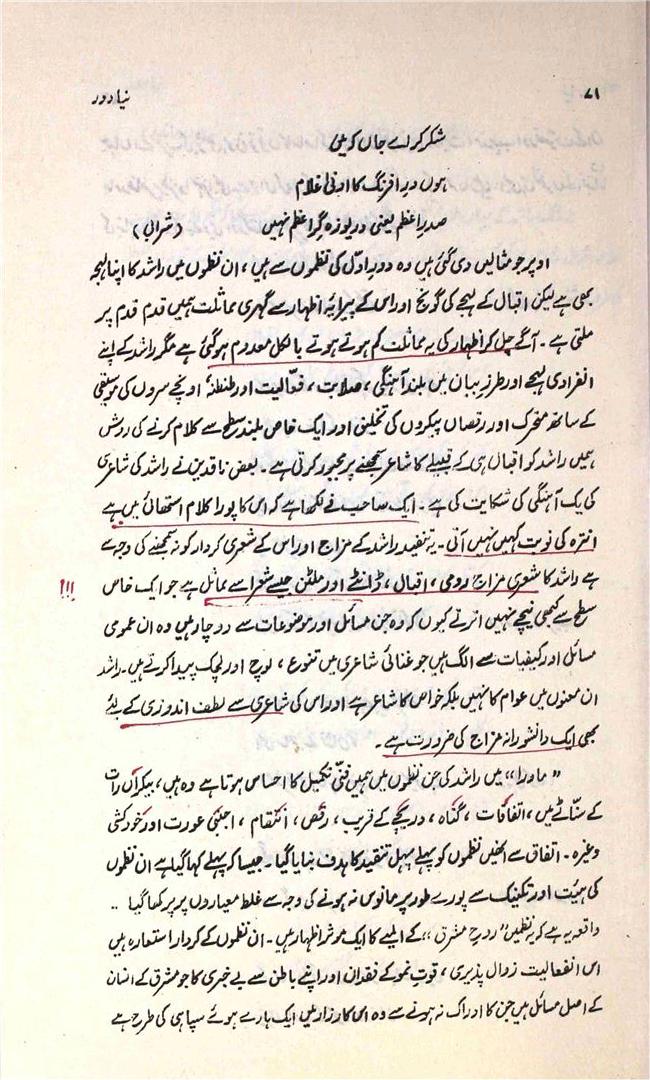 ۷۱ نیا دور
شکر کر اے جاں کہ میں
ہوں درِ افرنگ کا ادنیٰ غلام
صدرِ اعظم یعنی دریوزہ گرِ اعظم نہیں (شرابی)
اوپر جو مثالیں دی گئی ہیں وہ دورِ اوّل کی نظموں سے ہیں، ان نظموں میں راشد کا اپنا لہجہ
بھی ہے لیکن اقبال کے لہجے کی گونج اور اس کے پیرایۂ اظہار سے گہری مماثلت ہمیں قدم قدم پر
ملتی ہے۔ آگے چل کر اظہار کی یہ مماثلت کم ہوتے ہوتے بالکل معدوم ہو گئی ہے مگر راشد کے اپنے
انفرادی لہجے اور طرزِ بیان میں بلند آہنگی، صلابت، فعّالیت اور طنطنہ، اونچے سروں کی موسیقی
کے ساتھ متحرک اور رقصاں پیکروں کی تخلیق اور ایک خاص بلند سطح سے کلام کرنے کی روش
ہمیں راشد کو اقبال ہی کے قبیلے کا شاعر سمجھنے پر مجبور کرتی ہے۔ بعض ناقدین نے راشد کی شاعری
کی یک آہنگی کی شکایت کی ہے۔ ایک صاحب نے لکھا ہے کہ اس کا پورا کلام استھائی میں ہے
انترہ کی نوبت کہیں نہیں آتی۔ یہ تنقید راشد کے مزاج اور اس کے شعری کردار کو نہ سمجھنے کی وجہ سے
ہے راشد کا شعری مزاج رومی، اقبال، ڈانٹے اور ملٹن جیسے شعرا سے مماثل ہے جو ایک خاص !!!
سطح سے کبھی نیچے نہیں اترتے کیوں کہ وہ جن مسائل اور موضوعات سے دوچار ہیں وہ ان عمومی
مسائل اور کیفیات سے الگ ہیں جو غنائی شاعری میں تنوع، لوچ اور لچک پیدا کرتے ہیں۔ راشد
ان معنوں میں عوام کا نہیں بلکہ خواص کا شاعر ہے اور اس کی شاعری سے لطف اندوزی کے لئے
بھی ایک دانشورانہ مزاج کی ضرورت ہے۔
”ماورا“ میں راشد کی جن نظموں میں ہمیں فنّی تکمیل کا احساس ہوتا ہے وہ ہیں، بیکراں رات
کے سنّاٹے میں، اتفاقات، گناہ، دریچے کے قریب، رقص، انتقام، اجنبی عورت اور خودکشی
وغیرہ۔ اتفاق سے انھیں نظموں کو پہلے پہل تنقید کا ہدف بنایا گیا۔ جیسا کہ پہلے کہا گیا ہے ان نظموں
کی ہیئت اور تکنیک سے پورے طور پر مانوس نہ ہونے کی وجہ سے غلط معیاروں پر پرکھا گیا ..
واقعہ یہ ہے کہ یہ نظمیں ”روحِ مشرق“ کے المیے کا ایک موثر اظہار ہیں۔ ان نظموں کے کردار استعارہ ہیں
اس انفعالیت زوال پذیری، قوتِ نمو کے فقدان اور اپنے باطن سے بے خبری کا جو مشرق کے انسان
کے اصل مسائل ہیں جن کا ادراک نہ ہونے سے وہ اس کارزار میں ایک ہارے ہوئے سپاہی کی طرح ہے